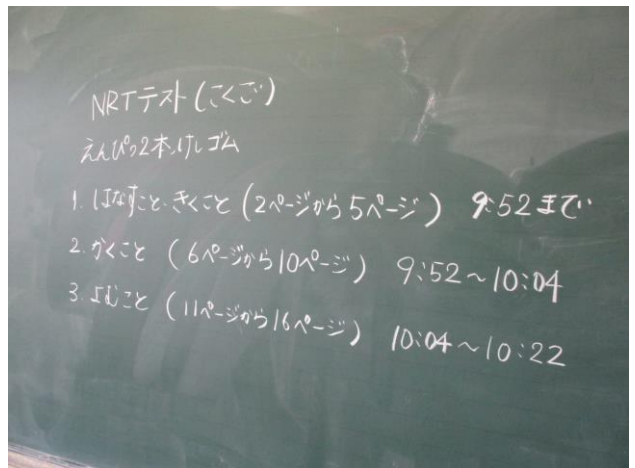 NRTテスト(こくご)
えんぴつ2本、けしゴム
1. はなすこと・きくこと(2ページから5ページ) 9:52まで
2. かくこと(6ページから10ページ) 9:52～10:04
3. よむこと(11ページから16ページ) 10:04～10:22